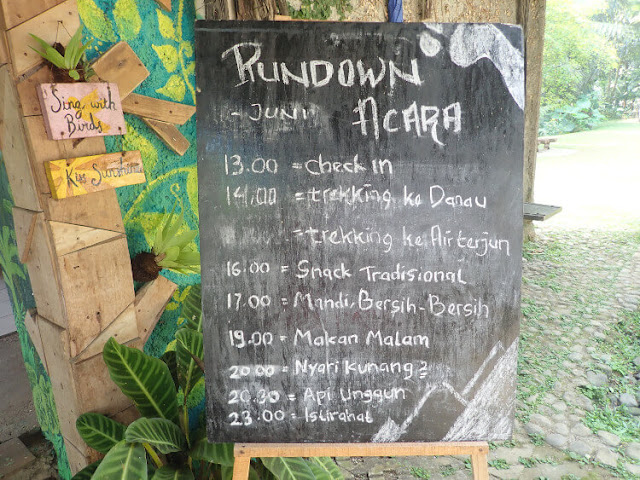 RUNDOWN
- JUNI ACARA
13.00 = check in
14.00 = trekking ke Danau
= trekking ke Air terjun
16.00 = Snack Tradisional
17.00 = Mandi, Bersih-Bersih
19.00 = Makan Malam
20.00 = Nyari Kunang2
20.30 = Api Unggun
23.00 = Istirahat
Sing with
Birds
Kiss Sunshine